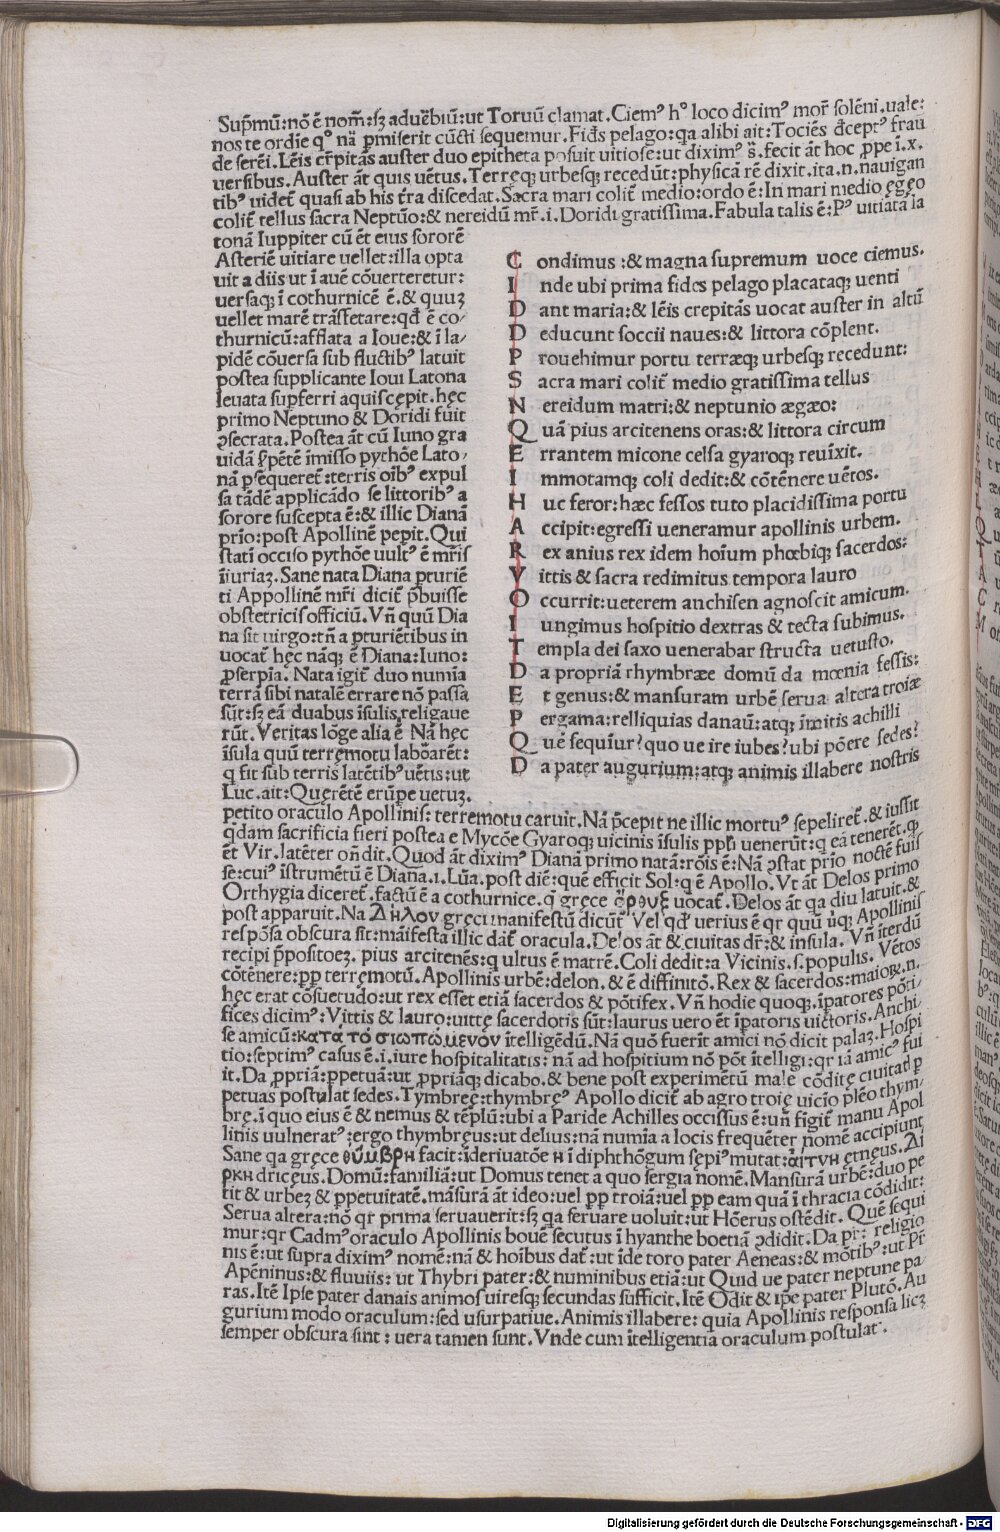 Sup̄mū:nō ē nom̄:sꝫ aduēbiū:ut Toruū clamat.Ciemꝰ hͦ loco dicimꝰ mor̄ solēni.uale:
nos te ordīe qͦ nā p̄miserit cūcti sequemur.Fid̄s pelago:qa alibi ait:Tociēs d̄ceptꝰ frau
de serēi.Lēis cr̄pitās auster duo epitheta posuit vitiose:ut diximꝰ s̄.fecit āt hoc ꝓpe ī.x.
uersibus.Auster āt quis uētus.Terręqꝫ urbesqꝫ recedūt:physicā rē dixit.ita.n.nauigan
tibꝰ uidet̄ quasi ab his t̄ra discedat.Sacra mari colit̄ medio:ordo ē:In mari medio ęgęo
colit̄ tellus sacra Neptūo:& nereidū mr̄.i.Doridi gratissima.Fabula talis ē:Pꝰ uitiatā la
tonā Iuppiter cū ēt eius sororē
Asteriē uitiare uellet:illa opta
uit a diis ut ī auē cōuerteretur:
uersaqꝫ ī cothurnicē ē.& quuꝫ
uellet marē trāsfetare:qd̄ ē co/
thurnicū:afflata a Ioue:& ī la/
pidē cōuersa sub fluctibꝰ latuit
postea supplicante Ioui Latona
leuata supferri aquis cępit.hęc
primo Neptuno & Doridi fuit
ꝯsecrata.Postea āt cū Iuno gra
uidā ꝑ pētē īmisso pythōe Lato/
nā ꝑsequeret̄:terris oībꝰ expul
sa tādē applicādo se littoribꝰ a
sorore suscepta ē:& illic Dianā
prīo:post Apollinē pepit.Qui
statī occiso pythōe uultꝰ ē mr̄is
īiuriaꝫ.Sane nata Diana ꝑturiē
ti Appollinē mr̄i dicit̄ p̄buisse
obstetricis officiū.Vn̄ quū Dia
na sit uirgo:tn̄ a ꝑturiētibus in
uocat̄ hęc nāqꝫ ē Diana:Iuno:
ꝓserpīa.Nata igit̄ duo numīa
terrā sibi natalē errare nō passa
sūt:sꝫ eā duabus īsulis religaue
rūt.Veritas lōge alia ē Nā hęc
īsula quū terręmotu laborāret:
q fit sub terris latētibꝰ uētis:ut
Luc.ait:Querētē erūpe uetuꝫ.
C ondimus:& magna supremum uoce ciemus.
I nde ubi prima fides pelago placataqꝫ uenti
D ant maria:& lēis crepitās uocat auster in altū
D educunt soccii naues:& littora cōplent.
P rouehimur portu terræqꝫ urbesqꝫ recedunt:
S acra mari colit̄ medio gratissima tellus
N ereidum matri:& neptunio ægæo:
Q uā pius arcitenens oras:& littora circum
E rrantem micone celsa gyaroqꝫ reuīxit.
I mmotamqꝫ coli dedit:& cōtēnere uētos.
H uc feror:hæc fessos tuto placidissima portu
A ccipit:egressi ueneramur apollinis urbem.
R ex anius rex idem hoīum phœbiqꝫ sacerdos:
V ittis & sacra redimitus tempora lauro
O ccurrit:ueterem anchisen agnoscit amicum.
I ungimus hospitio dextras & tecta subimus.
T empla dei saxo uenerabar structa uetusto.
D a propriā rhymbræe domū da mœnia fessis:
E t genus:& mansuram urbē serua altera troiæ
P ergama:relliquias danaū:atqꝫ īmitis achilli
Q uē sequīur?quo ue ire iubes?ubi pōere sedes?
D a pater augurium:atqꝫ animis illabere nostris
petito oraculo Apollinis: terręmotu caruit.Nā p̄cepit ne illic mortuꝰ sepeliret̄.& iussit
qdam sacrificia fieri postea e Mycōe Gyaroqꝫ uicinis īsulis ppl̄i uenerūt:q eā tenerēt.qͥ
ēt Vir.latēter on̄dit.Quod āt diximꝰ Dianā primo natā:rōis ē:Nā ꝯstat prīo noctē fuis
se:cuiꝰ īstrumētū ē Diana.i.Lūa.post diē:quē efficit Sol:q ē Apollo.Vt āt Delos primo
Orthygia diceret̄.factū ē a cothurnice.q grece ὀρθυξ uocat̄.Delos āt qa diu latuit.&
post apparuit.Na Δηλον gręci manifestū dicūt Vel qd̄ uerius ē qr quū ūqꝫ Apollinis
respōsa obscura sīt:māifesta illic dāt̄ oracula.Delos āt & ciuitas dr̄:& insula. Vn̄ īterdū
recipi p̄positoeꝫ.pius arcitenēs:q ultus ē matrē.Coli dedit:a Vicinis.s.populis. Vētos
cōtēnere:ꝓp terręmotū.Apollinis urbē:delon.& ē diffinitō.Rex & sacerdos:maioꝝ.n.
hęc erat cōsuetudo:ut rex esset etiā sacerdos & pōtifex.Vn̄ hodie quoqꝫ.īpatores pōti/
fices dicimꝰ:Vittis & lauro:uittę sacerdotis sūt:laurus uero ēt īpatoris uictoris.Anchi/
se amicū:κατά τό σιωπώμενόν ītelligēdū.Nā quō fuerīt amici nō dicit palaꝫ.Hospi
tio:septimꝰ casus ē.i.iure hospitalitatis: nā ad hospitium nō pōt ītelligi:qr iā amicꝰ fui
it.Da ꝓpriā:ꝑpetuā:ut ꝓpriāqꝫ dicabo.& bene post experimētū male cōditę ciuitat̄ ꝑ
petuas postulat sedes.Tymbręe:thymbręꝰ Apollo dicit̄ ab agro troię uicīo plēo thym/
brę.ī quo eius ē & nemus & tēplū:ubi a Paride Achilles occissus ē:un̄ figit̄ manu Apol
linis uulneratꝰ:ergo thymbręus:ut delius:nā numīa a locis frequēter nomē accipiunt
Sane qa gręce θύμβρη facit:īderiuatōe η ī diphthōgum sępiꝰmutat:ἀίτνη ętnęus.Δι
ρκη dricęus.Domū:familiā:ut Domus tenet a quo sergia nomē.Mansurā urbē:duo pe
tit & urbeꝫ & ꝑpetuitatē.māsurā āt ideo:uel ꝓp troiā:uel ꝓp eam quā ī thracia cōdidit:
Serua altera:nō qr prima seruauerit:sꝫ qa seruare uoluit:ut Hōerus ostēdit. Quē sequi
mur:qr Cadmꝰoraculo Apollinis bouē secutus ī hyanthe boetiā ꝯdidit.Da pr̄: religio
nis ē:ut supra diximꝰ nomē:nā & hoībus dat̄:ut īde toro pater Aeneas:& mōtibꝰ:ut Pr̄
Apēninus:& fluuiis: ut Thybri pater:& numinibus etiā:ut Quid ue pater neptune pa/
ras.Itē Ipse pater danais animos uiresqꝫ secundas sufficit.Itē Odit & ipe pater Plutō.Au
gurium modo oraculum:sed usurpatiue.Animis illabere: quia Apollinis responsa licꝫ
semper obscura sint: uera tamen sunt.Vnde cum ītelligentia oraculum postulat.
Digitalisierung gefördert durch die Deutsche Forschungsgemeinschaft - DFG